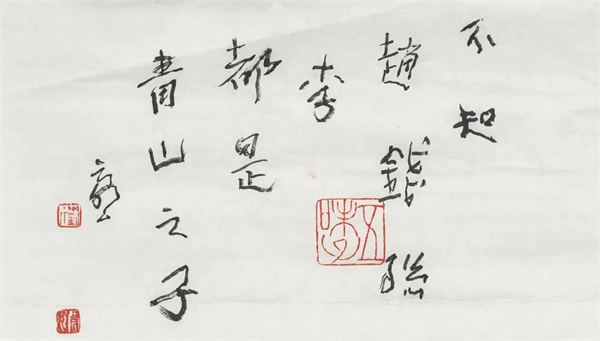 不知
趙錢孫
李
都是
青山之子